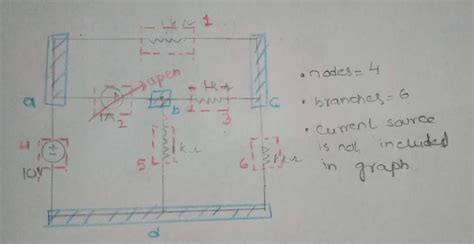 1
1kΩ
open
a
1A
2
b
1kΩ
3
c
4
10V
5
kΩ
6
kΩ
d
• nodes = 4
• branches = 6
• current source
is not included
in graph